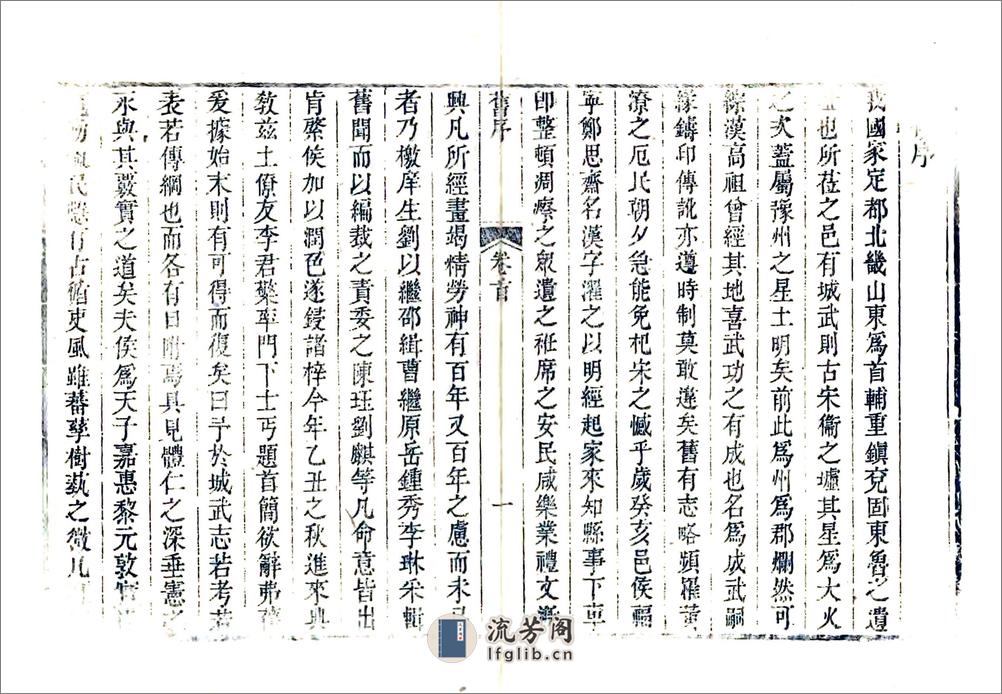 序
國家定都北畿山東爲首輔重鎮兗固東魯之遺
也所莅之邑有城武則古宋衞之墟其星爲大火
之次蓋屬豫州之星土明矣前此爲州爲郡爛然可
綜漢高祖曾經其地喜武功之有成也名爲成武嗣
緣鑄印傳訛亦遵時制莫敢違矣舊有志略頻罹黃
潦之厄民朝夕急能免杞宋之憾乎歲癸亥邑侯福
寧鄭思齋名漢字濯之以明經起家來知縣事下車
卽整頓凋瘵之衆遺之袵席之安民咸樂業禮文漸
舊序
卷首
一
興凡所經畫竭精勞神有百年又百年之慮而未
者乃檄庠生劉以繼邵緝曹繼原岳鍾秀李琳采輯
舊聞而以編裁之責委之陳珏劉麒等凡命意皆出
肯綮侯加以潤色遂鋟諸梓今年乙丑之秋進來典
敎兹土僚友李君蘗率門下士丐題首簡欲辭弗
爰據始末則有可得而復矣曰予於城武志若考
表若傳綱也而各有目附焉具見體仁之深垂憲
永與其覈實之道矣夫侯爲天子嘉惠黎元敦
民 有古循吏風雖蕃孳樹藝之微凡
流芳阁
lfglib.cn